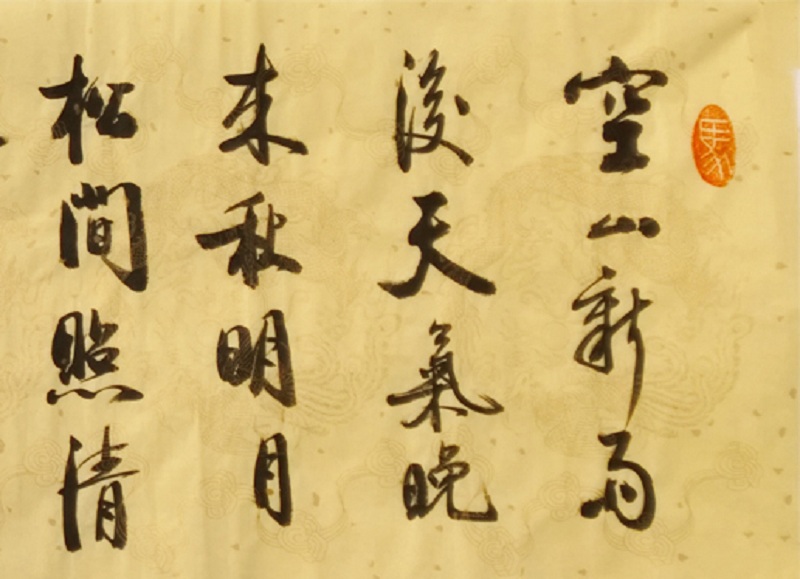 空山新雨
後天氣晚
来秋明月
松間照清